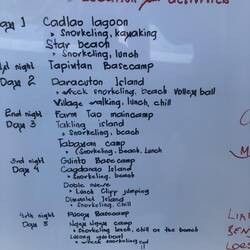 Day 1 Cadlao lagoon
• Snorkeling, kayaking
Star beach
• Snorkeling, lunch
1st night Tapiutan Basecamp
Day 2 Daracuton Island
• wreck snorkeling, beach volley ball
Village walking, lunch, chill
2nd night Farm Tao maincamp
Day 3 Takling island
• Snorkeling, beach
camp
• Snorkeling, beach, Lunch
3rd night Gginto Basecamp
Day 4 Cagdanao Island
• Snorkeling, beach
• Lunch Cliff jumping
Dimanlet Island
• Snorkeling, chill
4th night Basecamp
Day 5
• Snorkeling, chill on the beach
Lusong gunboat
• wreck snorkeling